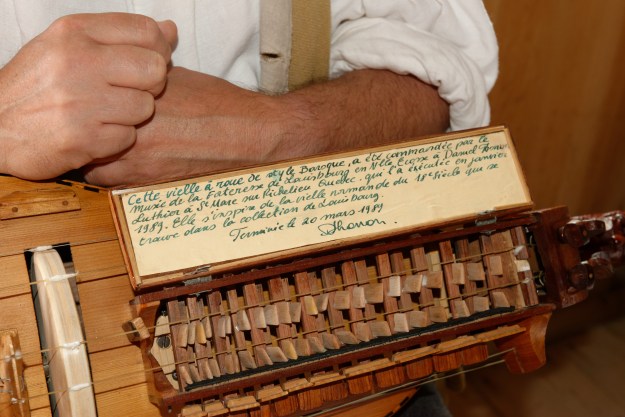 Cette vielle à roue de style Baroque, a été commandée par le
musée de la Forteresse de Louisbourg en Nlle Écosse à Daniel Thonon
Luthier à St Marc sur Richelieu Québec. qui l'a exécutée en janvier
1989. Elle s'inspire de la vielle romande du 18e siècle qui se
trouve dans la collection de Louisbourg.
Terminée le 20 mars 1989
DThonon.